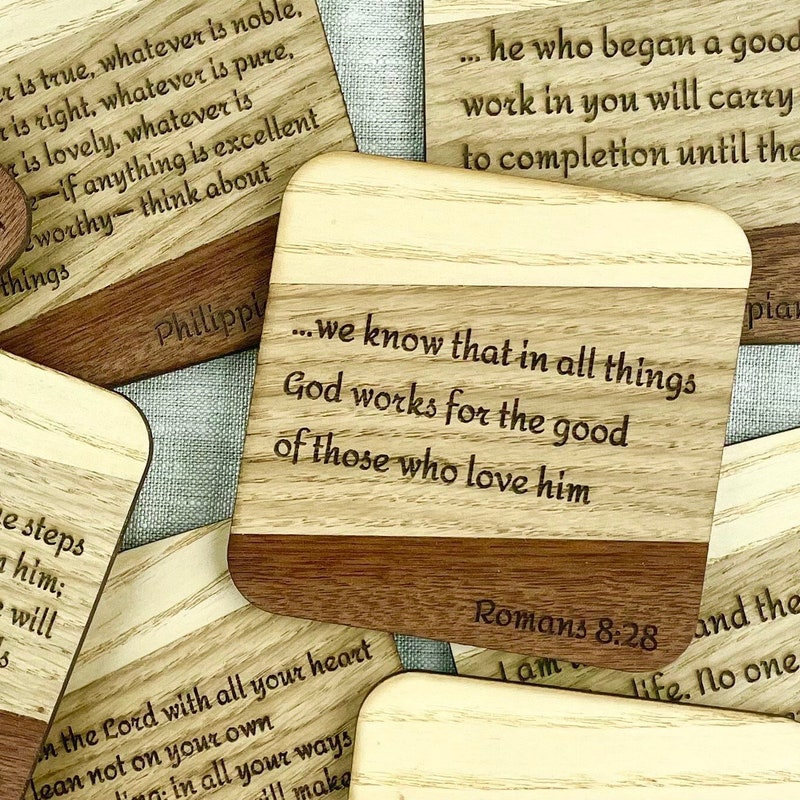 is true, whatever is noble,
is right, whatever is pure,
is lovely, whatever is
—if anything is excellent
worthy— think about
things
... he who began a good
work in you will carry
to completion until the
...we know that in all things
God works for the good
of those who love him
Romans 8:28
steps
him;
will
the Lord with all your heart
lean not on your own
in all your ways
will make
and the
I am
life. No one